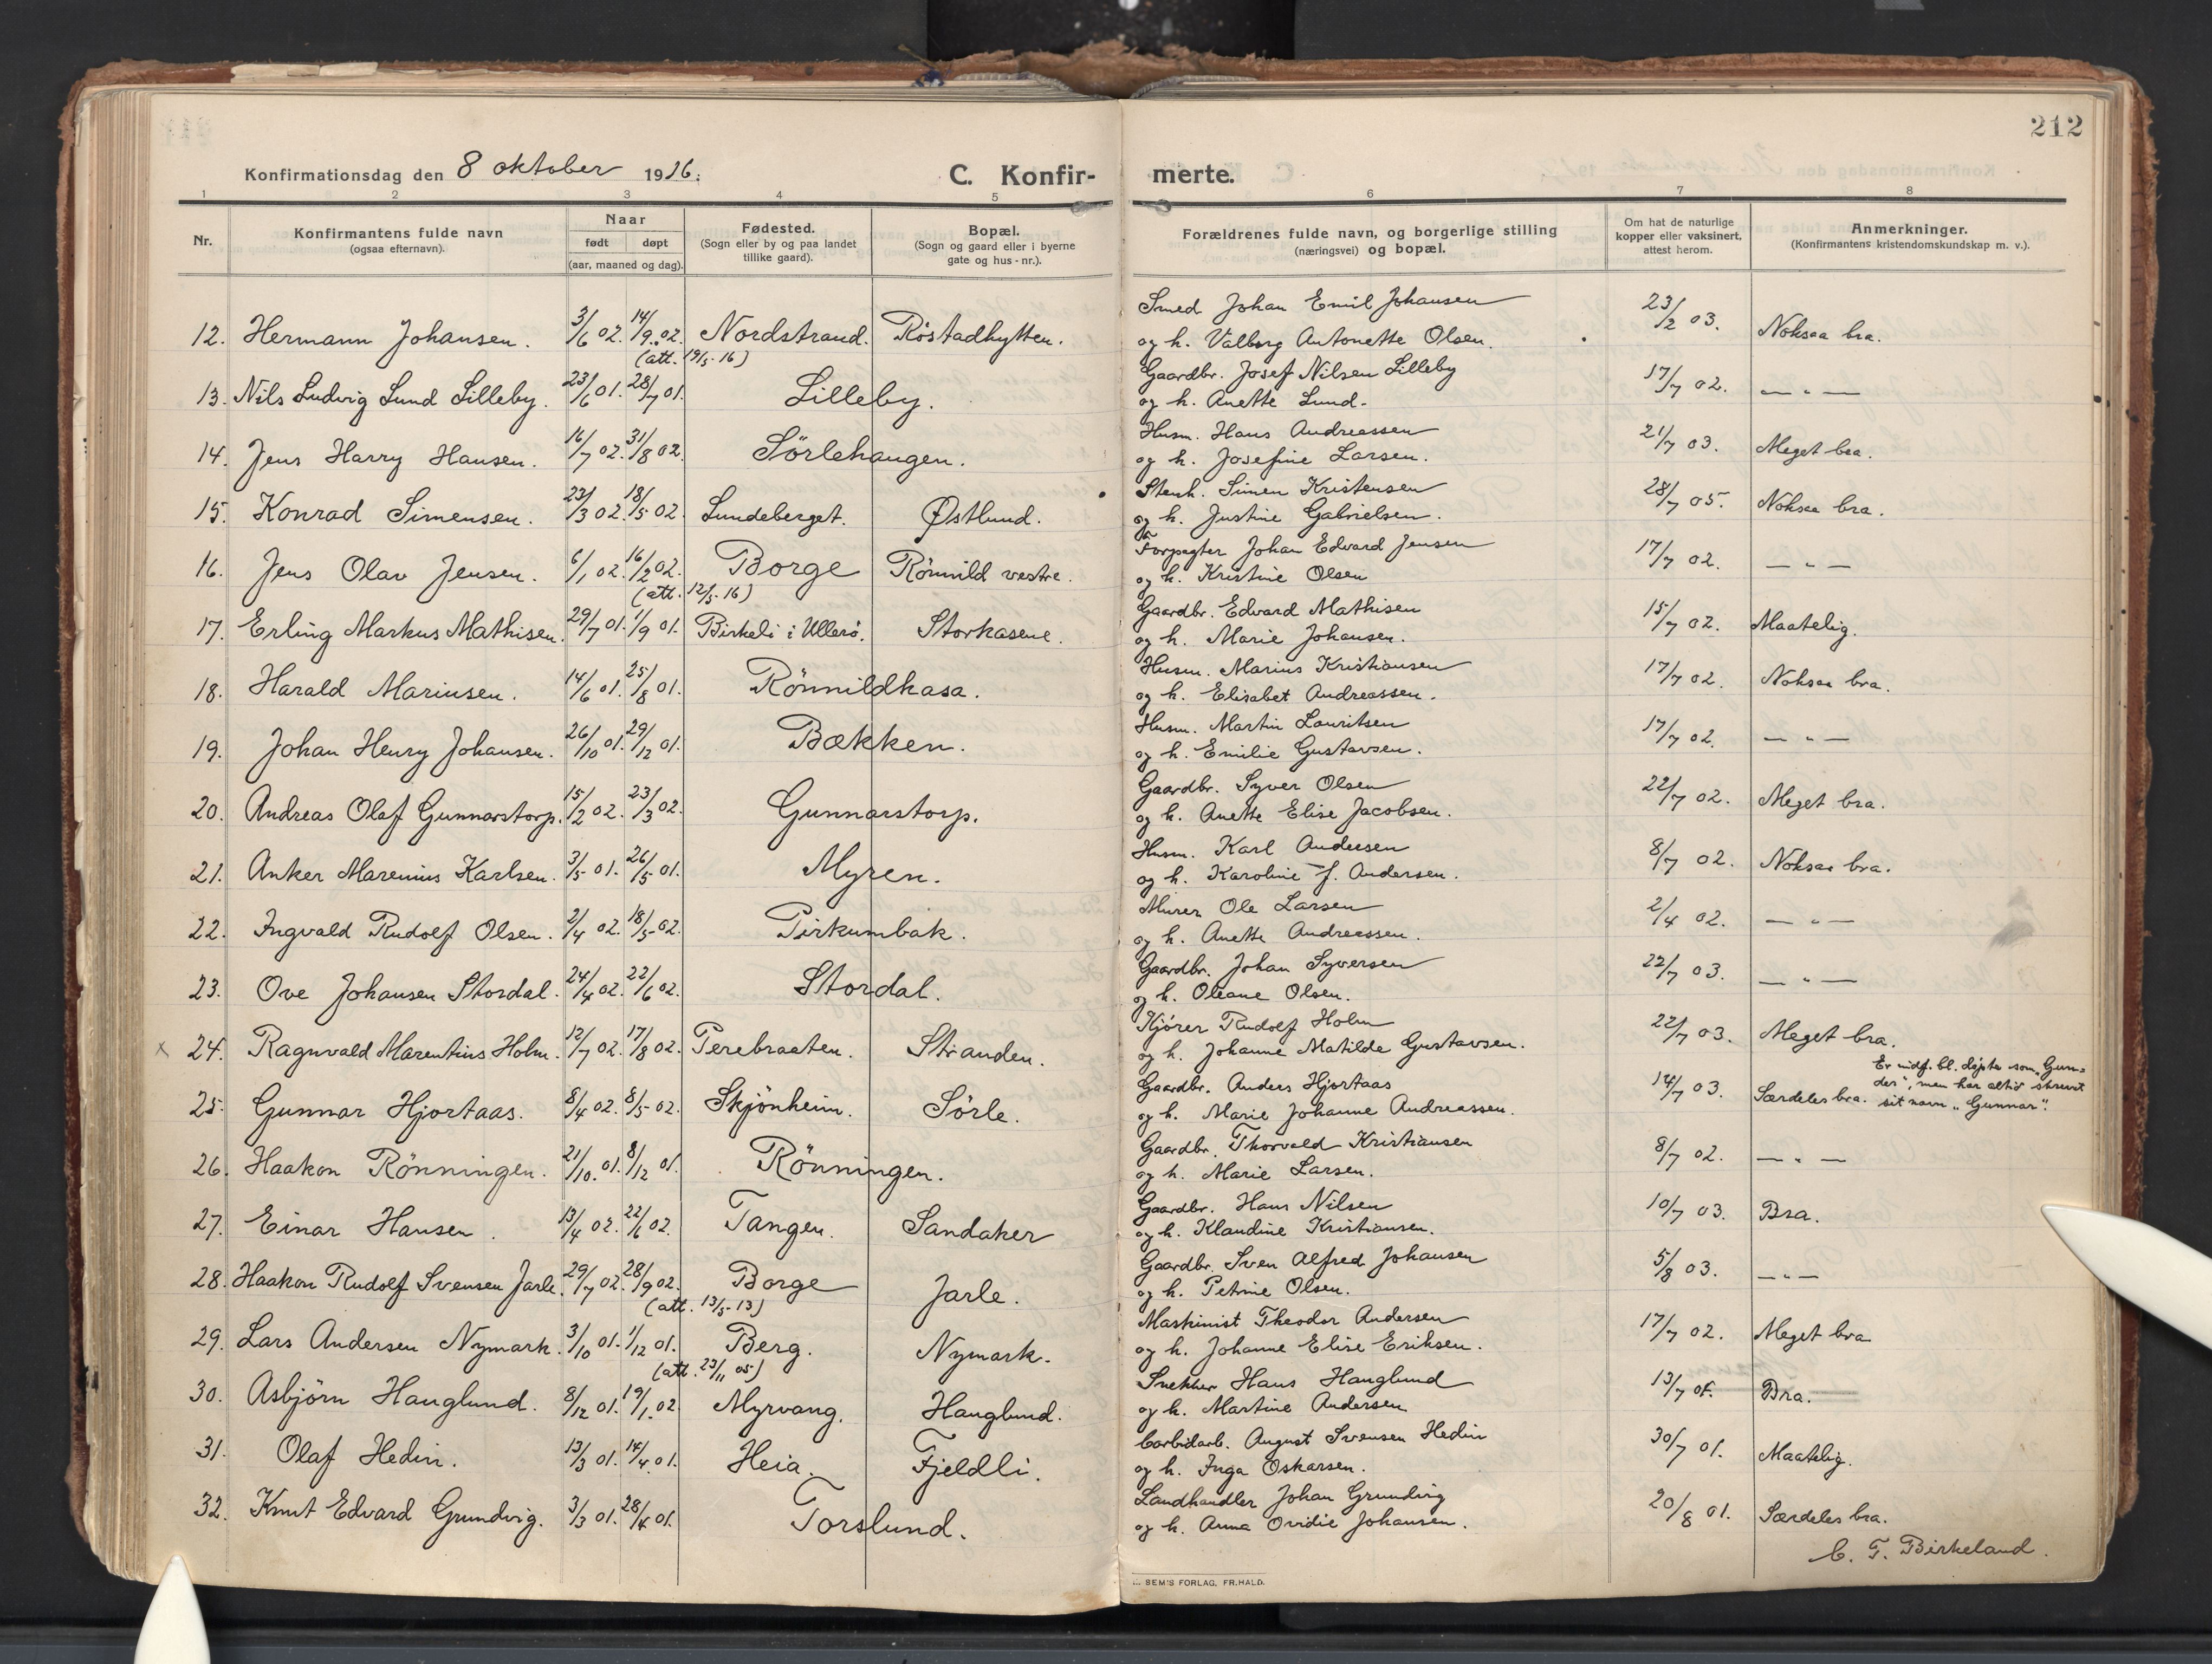 212
Konfirmationsdag den 8 oktober 1916.
C. Konfirmerte.
1 2 3 4 5 6 7 8
Nr.
Konfirmantens fulde navn
(ogsaa efternavn).
Naar
født døpt
(aar, maaned og dag).
Fødested.
(Sogn eller by og paa landet
tillike gaard).
Bopæl.
(Sogn og gaard eller i byerne
gate og hus-nr.).
Forældrenes fulde navn, og borgerlige stilling
(næringsvei) og bopæl.
Om hat de naturlige
kopper eller vaksinert,
attest herom.
Anmerkninger.
(Konfirmantens kristendomskundskap m. v.).
12. Hermann Johansen. 3/6 02. 14/9 02. Nordstrand. Röstadhytten. Smed Johan Emil Johansen 23/2 03. Noksaa bra.
(att. 19/5-16) og h. Valborg Antonette Olsen.
13. Nils Ludvig Lund Lilleby. 23/6 01. 28/7 01. Lilleby. Gaardbr. Josef Nilsen Lilleby 17/7 02. — " —
og h. Anette Lund.
14. Jens Harry Hansen. 16/7 02. 31/8 02. Sörlehaugen. Husm. Hans Andreassen 21/7 03. Meget bra.
og h. Josefine Larsen.
15. Konrad Simensen. 23/3 02. 18/5 02. Lundeberget. Östlund. Stenh. Simen Kristensen 28/7 05. Noksaa bra.
og h. Justine Gabrielsen.
16. Jens Olav Jensen. 6/1 02. 16/2 02. Borge Rönnild vestre. Forpagter Johan Edvard Jensen 17/7 02. — " —
(att. 12/5-16) og h. Kristine Olsen
17. Erling Markus Mathisen. 29/7 01. 1/9 01. Birkeli i Ullerö. Storkasene. Gaardbr. Edvard Mathisen 15/7 02. Maatelig.
og h. Marie Johansen.
18. Harald Mariusen. 14/6 01. 25/8 01. Rönnildkasa. Husm. Marius Kristiansen 17/7 02. Noksaa bra.
og h. Elisabet Andreassen.
19. Johan Henry Johansen. 26/10 01. 29/12 01. Bækken. Husm. Martin Lauritsen 17/7 02. — " —
og h. Emilie Gustavsen.
20. Andreas Olaf Gunnarstorp. 15/2 02. 23/3 02. Gunnarstorp. Gaardbr. Syver Olsen 22/7 02. Meget bra.
og h. Anette Elise Jacobsen.
21. Anker Marenius Karlsen. 3/5 01. 26/5 01. Myren. Husm. Karl Andersen 8/7 02. Noksaa bra.
og h. Karoline J. Andersen.
22. Ingvald Rudolf Olsen. 2/4 02. 18/5-02. Pirkumbak. Murer Ole Larsen 2/4 02. — " —
og h. Anette Andreassen.
23. Ove Johansen Stordal. 24/4 02. 22/6 02. Stordal. Gaardbr. Johan Syversen 22/7 03. — " —
og h. Oleane Olsen.
x 24. Ragnvald Marentius Holm. 12/7 02. 17/8 02. Perebraaten. Stranden. Kjörer Rudolf Holm 22/7 03. Meget bra.
og h. Johanne Matilde Gustavsen.
25. Gunnar Hjortaas. 8/4 02. 8/5-02. Skjönheim. Sörle. Gaardbr. Anders Hjortaas 14/7 03. Særdeles bra. Er indf. bl. döpte som „Gun-
der", men har altid skrevet
sit navn „Gunnar".
og h. Marie Johanne Andreassen.
26. Haakon Rönningen. 21/10. 01. 8/12 01. Rönningen. Gaardbr. Thorvald Kristiansen 8/7 02. — " —
og h. Marie Larsen.
27. Einar Hansen. 13/4 02. 22/6 02. Tangen. Sandaker Gaardbr. Hans Nilsen 10/7 03. Bra.
og h. Klaudine Kristiansen.
28. Haakon Rudolf Svensen Jarle. 29/7 02. 28/9 02. Borge Jarle. Gaardbr. Sven Alfred Johansen 5/8 03. — " —
(att. 13/5-13) og h. Petrine Olsen.
29. Lars Andersen Nymark. 3/10 01. 1/12 01. Berg. Nymark. Maskinist Theodor Andersen 17/7 02. Meget bra
(att. 23/11 05) og h. Johanne Elise Eriksen.
30. Asbjörn Hauglund. 8/12 01. 19/1. 02. Myrvang. Hauglund. Snekker Hans Hauglund 13/7 05. Bra.
og h. Martine Andersen
31. Olaf Hedin. 13/3 01. 14/4 01. Heia. Fjeldli. Carbidarb. August Svensen Hedin 30/7 01. Maatelig.
og h. Inga Oskarsen.
32. Knut Edvard Grundvig. 3/3 01. 28/4 01. Torslund. Landhandler Johan Grundvig 20/8 01. Særdeles bra.
og h. Anna Ovidie Johansen.
C. F. Birkeland.
SEM'S FORLAG, FR.HALD.